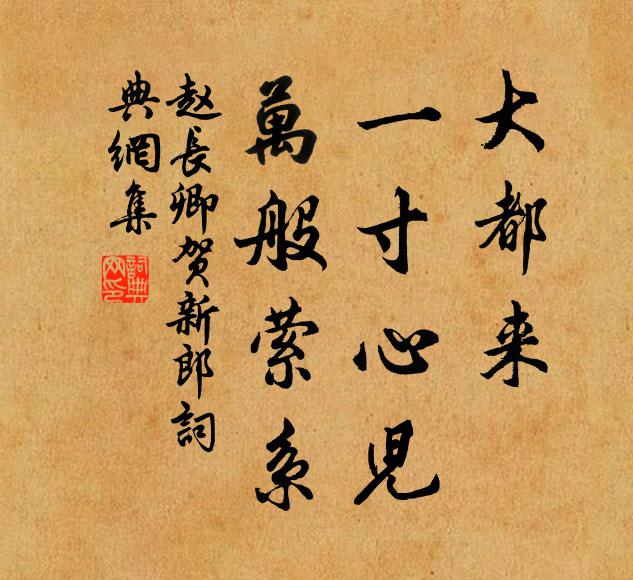 大都来
一寸心児
萬般萦系
赵長卿贺新郎詞
典網集
詞典
网印